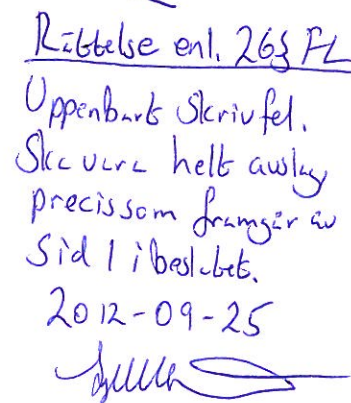 Rättelse enl. 26§ FL
Uppenbart skrivfel.
Ska vara helt avslag
precis som framgår av
sid 1 i beslutet.
2012-09-25